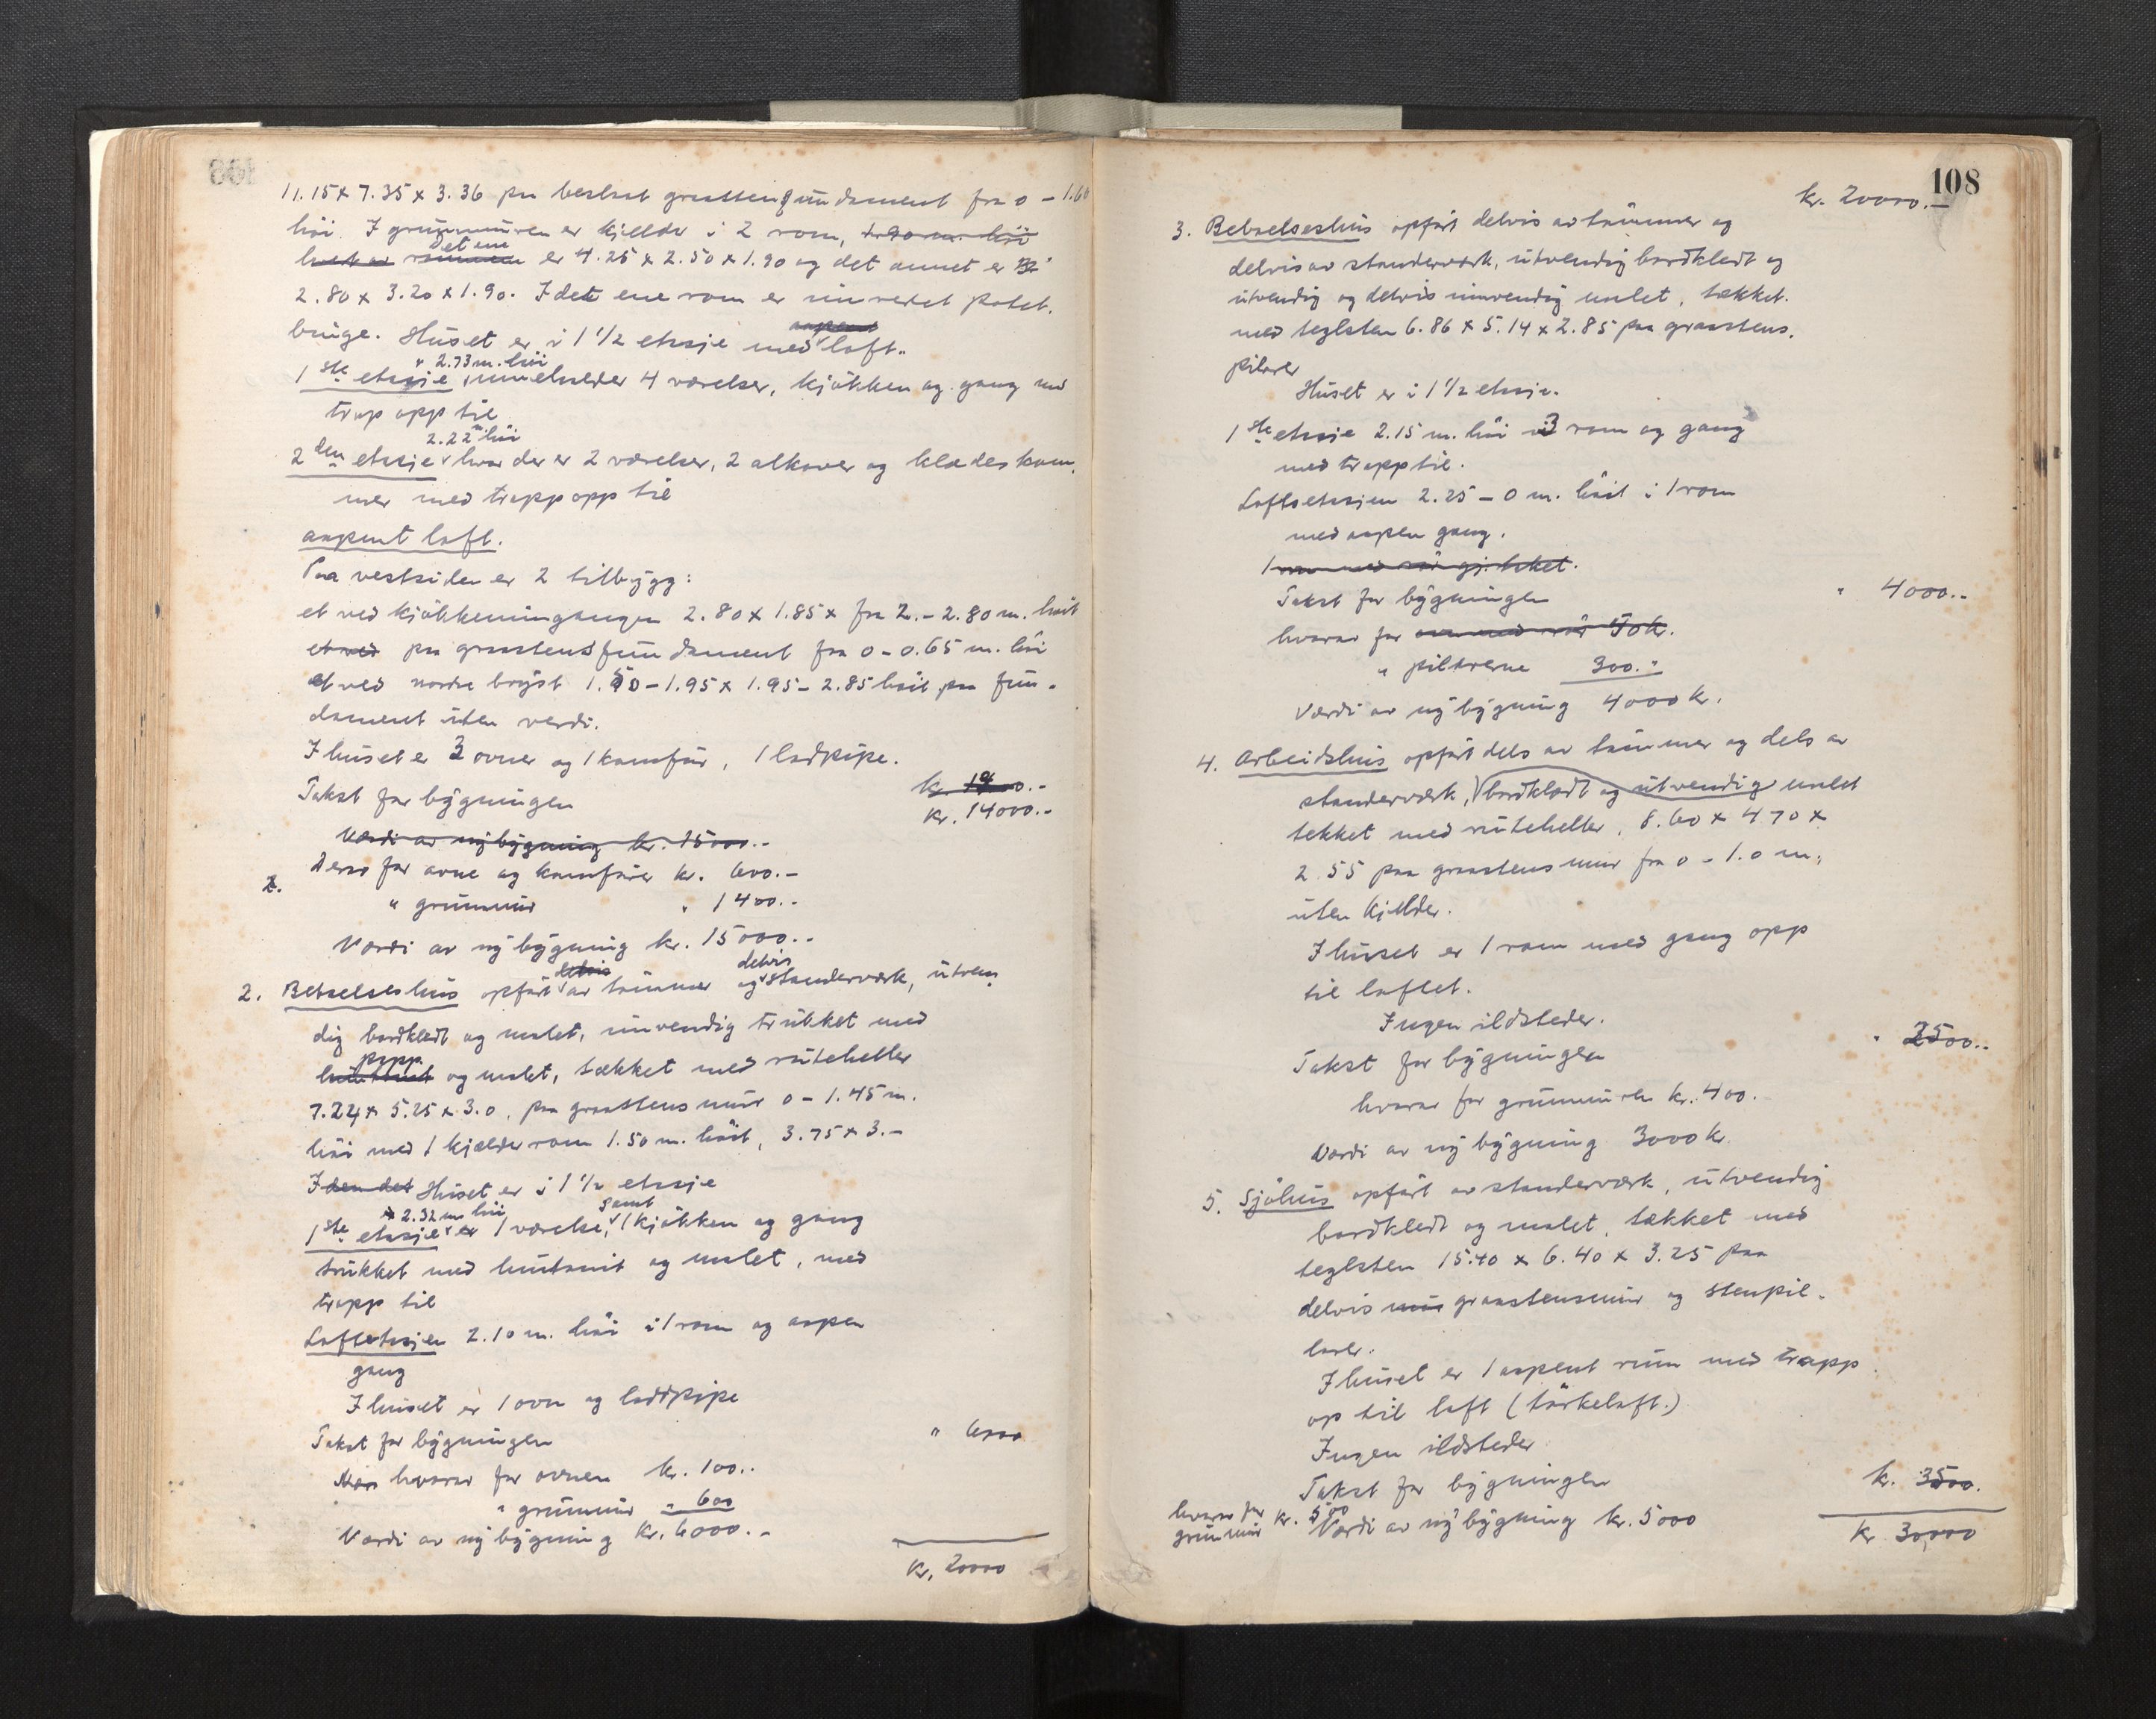 11.15 x 7.35 x 3.36 paa beslaat graastensfundament fra 0 - 1.60
höi. I grunnmuren er kjelder i 2 rom, 1.90 m. höi
hvert av rummene det ene er 4.25 x 2.50 x 1.90 og det annet er
2.80 x 3.20 x 1.90. I det ene rom er innredet potet.
binge. Huset er i 1 1/2 etasje med aapent loft.
1ste etasje 2.73 m. höi inneholder 4 værelser, kjökken og gang med
trap opp til
2.22 m höi
2den etasje hvor der er 2 værelser, 2 alkover og klædeskam.
mer med trapp opp til
aapent loft.
Paa vestsiden er 2 tilbygg:
et ved kjökkeninngangen 2.80 x 1.85 x fra 2.- 2.80 m. höit
et ved paa graastensfundament fra 0 - 0.65 m. höi
et ved nordre bryst 1.50 - 1.95 x 1.95 - 2.85 höit paa fun-
dament uten verdi.
I huset er 3 ovner og 1 komfur, 1 lodpipe.
Takst for bygningen
kr. 14000.-
Værdi av ny bygning kr. 15000.-
Derav for ovne og komfurer kr. 600.-
" grunmur " 1400.-
Værdi av ny bygning kr. 15000.-
2. Beboelseshus opfört delvis av tömmer og delvis standerværk, utven.
dig bordklædt og malet, innvendig trukket med
papp og malet, tækket med ruteheller
7.24 x 5.25 x 3.0. paa graastensmur 0 - 1.45 m.
höi med 1 kjælderrom 1.50 m. höit, 3.75 x 3.-
I den det Huset er i 1 1/2 etasje
1ste etasje 2.32 m höi er 1 værelse, samt 1 kjökken og gang
trukket med huntonit og malet, med
trapp til
Loftetasjen 2.10 m. höi i 1 rom og aapen
gang
I huset er 1 ovn og loddpipe
Takst for bygningen " 6000
hvorav for ovnen kr. 100..
" grunmur " 600
Værdi av ny bygning kr. 6000.-
kr. 20000
108
kr. 20000.-
3. Beboelseshus opfört delvis av tömmer og
delvis av standerværk, utvendig bordkledt og
utvendig og delvis innvendig malet, tækket.
med teglsten 6.86 x 5.14 x 2.85 paa graastens.
pilarer
Huset er i 1 1/2 etasje.
1ste etasje 2.15 m. höi 3 rom og gang
med trapp til.
Loftsetasjen 2.25 - 0 m. höit i 1 rom
med aapen gang.
Takst for bygningen " 4000..
hvorav for ovn med rör 70 kr.
" pilarerne 300."
Værdi av ny bygning 4000 kr.
4. Arbeidshus opfört dels av tömmer og dels av
standerværk, bordklædt og utvendig malet
tekket med ruteheller, 8.60 x 470 x
2.55 paa graastensmur fra 0 - 1.0 m.
uten kjelder.
I huset er 1 rom med gang opp
til loftet.
Ingen ildsteder.
Takst for bygningen " 2500..
hvorav for grunmuren kr. 400.
Værdi av ny bygning 3000 kr.
5. Sjöhus opfört av standerværk, utvendig
bordkledt og malet, tækket med
teglsten 15.40 x 6.40 x 3.25 paa
delvis mur graastensmur og stenpil-
larer.
I huset er 1 aapent rum med trapp
op til loft (törkeloft.)
Ingen ildsteder
Takst for bygningen kr. 3500.
hvorav for
grunmur kr. 500 Værdi av ny bygning kr. 5000
kr 30,000